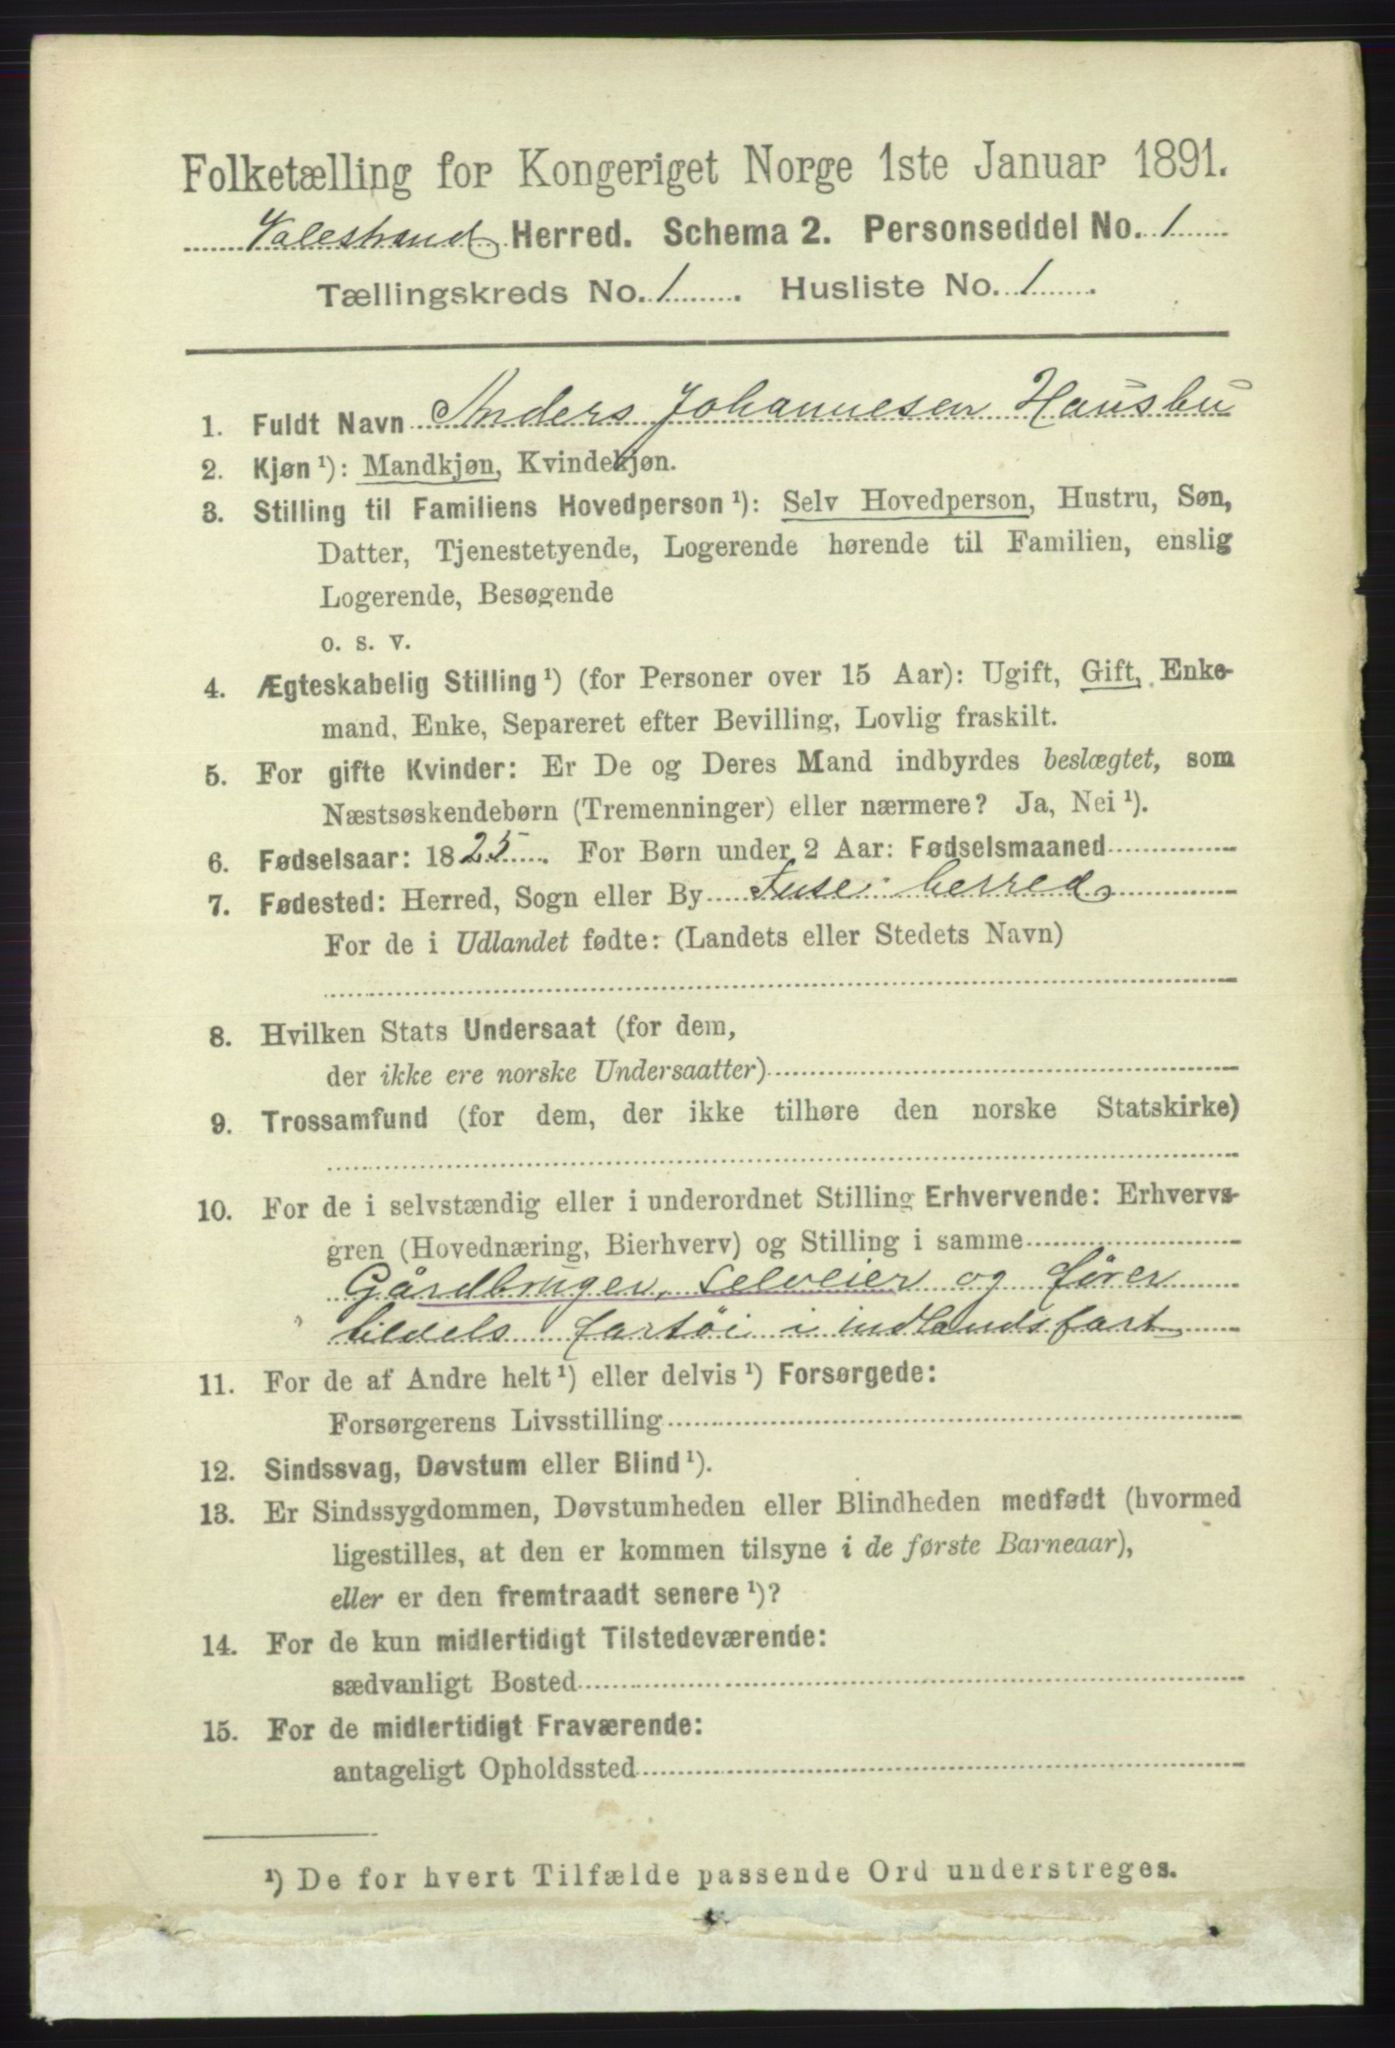 Folketælling for Kongeriget Norge 1ste Januar 1891.
Valestrand Herred. Schema 2. Personseddel No. 1
Tællingskreds No. 1. Husliste No. 1.
1. Fuldt Navn Anders Johannesen Hausbu
2. Kjøn ¹): Mandkjøn, Kvindekjøn.
3. Stilling til Familiens Hovedperson ¹): Selv Hovedperson, Hustru, Søn,
Datter, Tjenestetyende, Logerende hørende til Familien, enslig
Logerende, Besøgende
o. s. v.
4. Ægteskabelig Stilling ¹) (for Personer over 15 Aar): Ugift, Gift, Enke-
mand, Enke, Separeret efter Bevilling, Lovlig fraskilt.
5. For gifte Kvinder: Er De og Deres Mand indbyrdes beslægtet, som
Næstsøskendebørn (Tremenninger) eller nærmere? Ja, Nei ¹).
6. Fødselsaar: 1825. For Børn under 2 Aar: Fødselsmaaned
7. Fødested: Herred, Sogn eller By Fuse herred
For de i Udlandet fødte: (Landets eller Stedets Navn)
8. Hvilken Stats Undersaat (for dem,
der ikke ere norske Undersaatter)
9. Trossamfund (for dem, der ikke tilhøre den norske Statskirke)
10. For de i selvstændig eller i underordnet Stilling Erhvervende: Erhvervs-
gren (Hovednæring, Bierhverv) og Stilling i samme
Gårdbruger, selveier og fører
tildels fartøi i indlandsfart
11. For de af Andre helt ¹) eller delvis ¹) Forsørgede:
Forsørgerens Livsstilling
12. Sindssvag, Døvstum eller Blind ¹).
13. Er Sindssygdommen, Døvstumheden eller Blindheden medfødt (hvormed
ligestilles, at den er kommen tilsyne i de første Barneaar),
eller er den fremtraadt senere ¹)?
14. For de kun midlertidigt Tilstedeværende:
sædvanligt Bosted
15. For de midlertidigt Fraværende:
antageligt Opholdssted
¹) De for hvert Tilfælde passende Ord understreges.